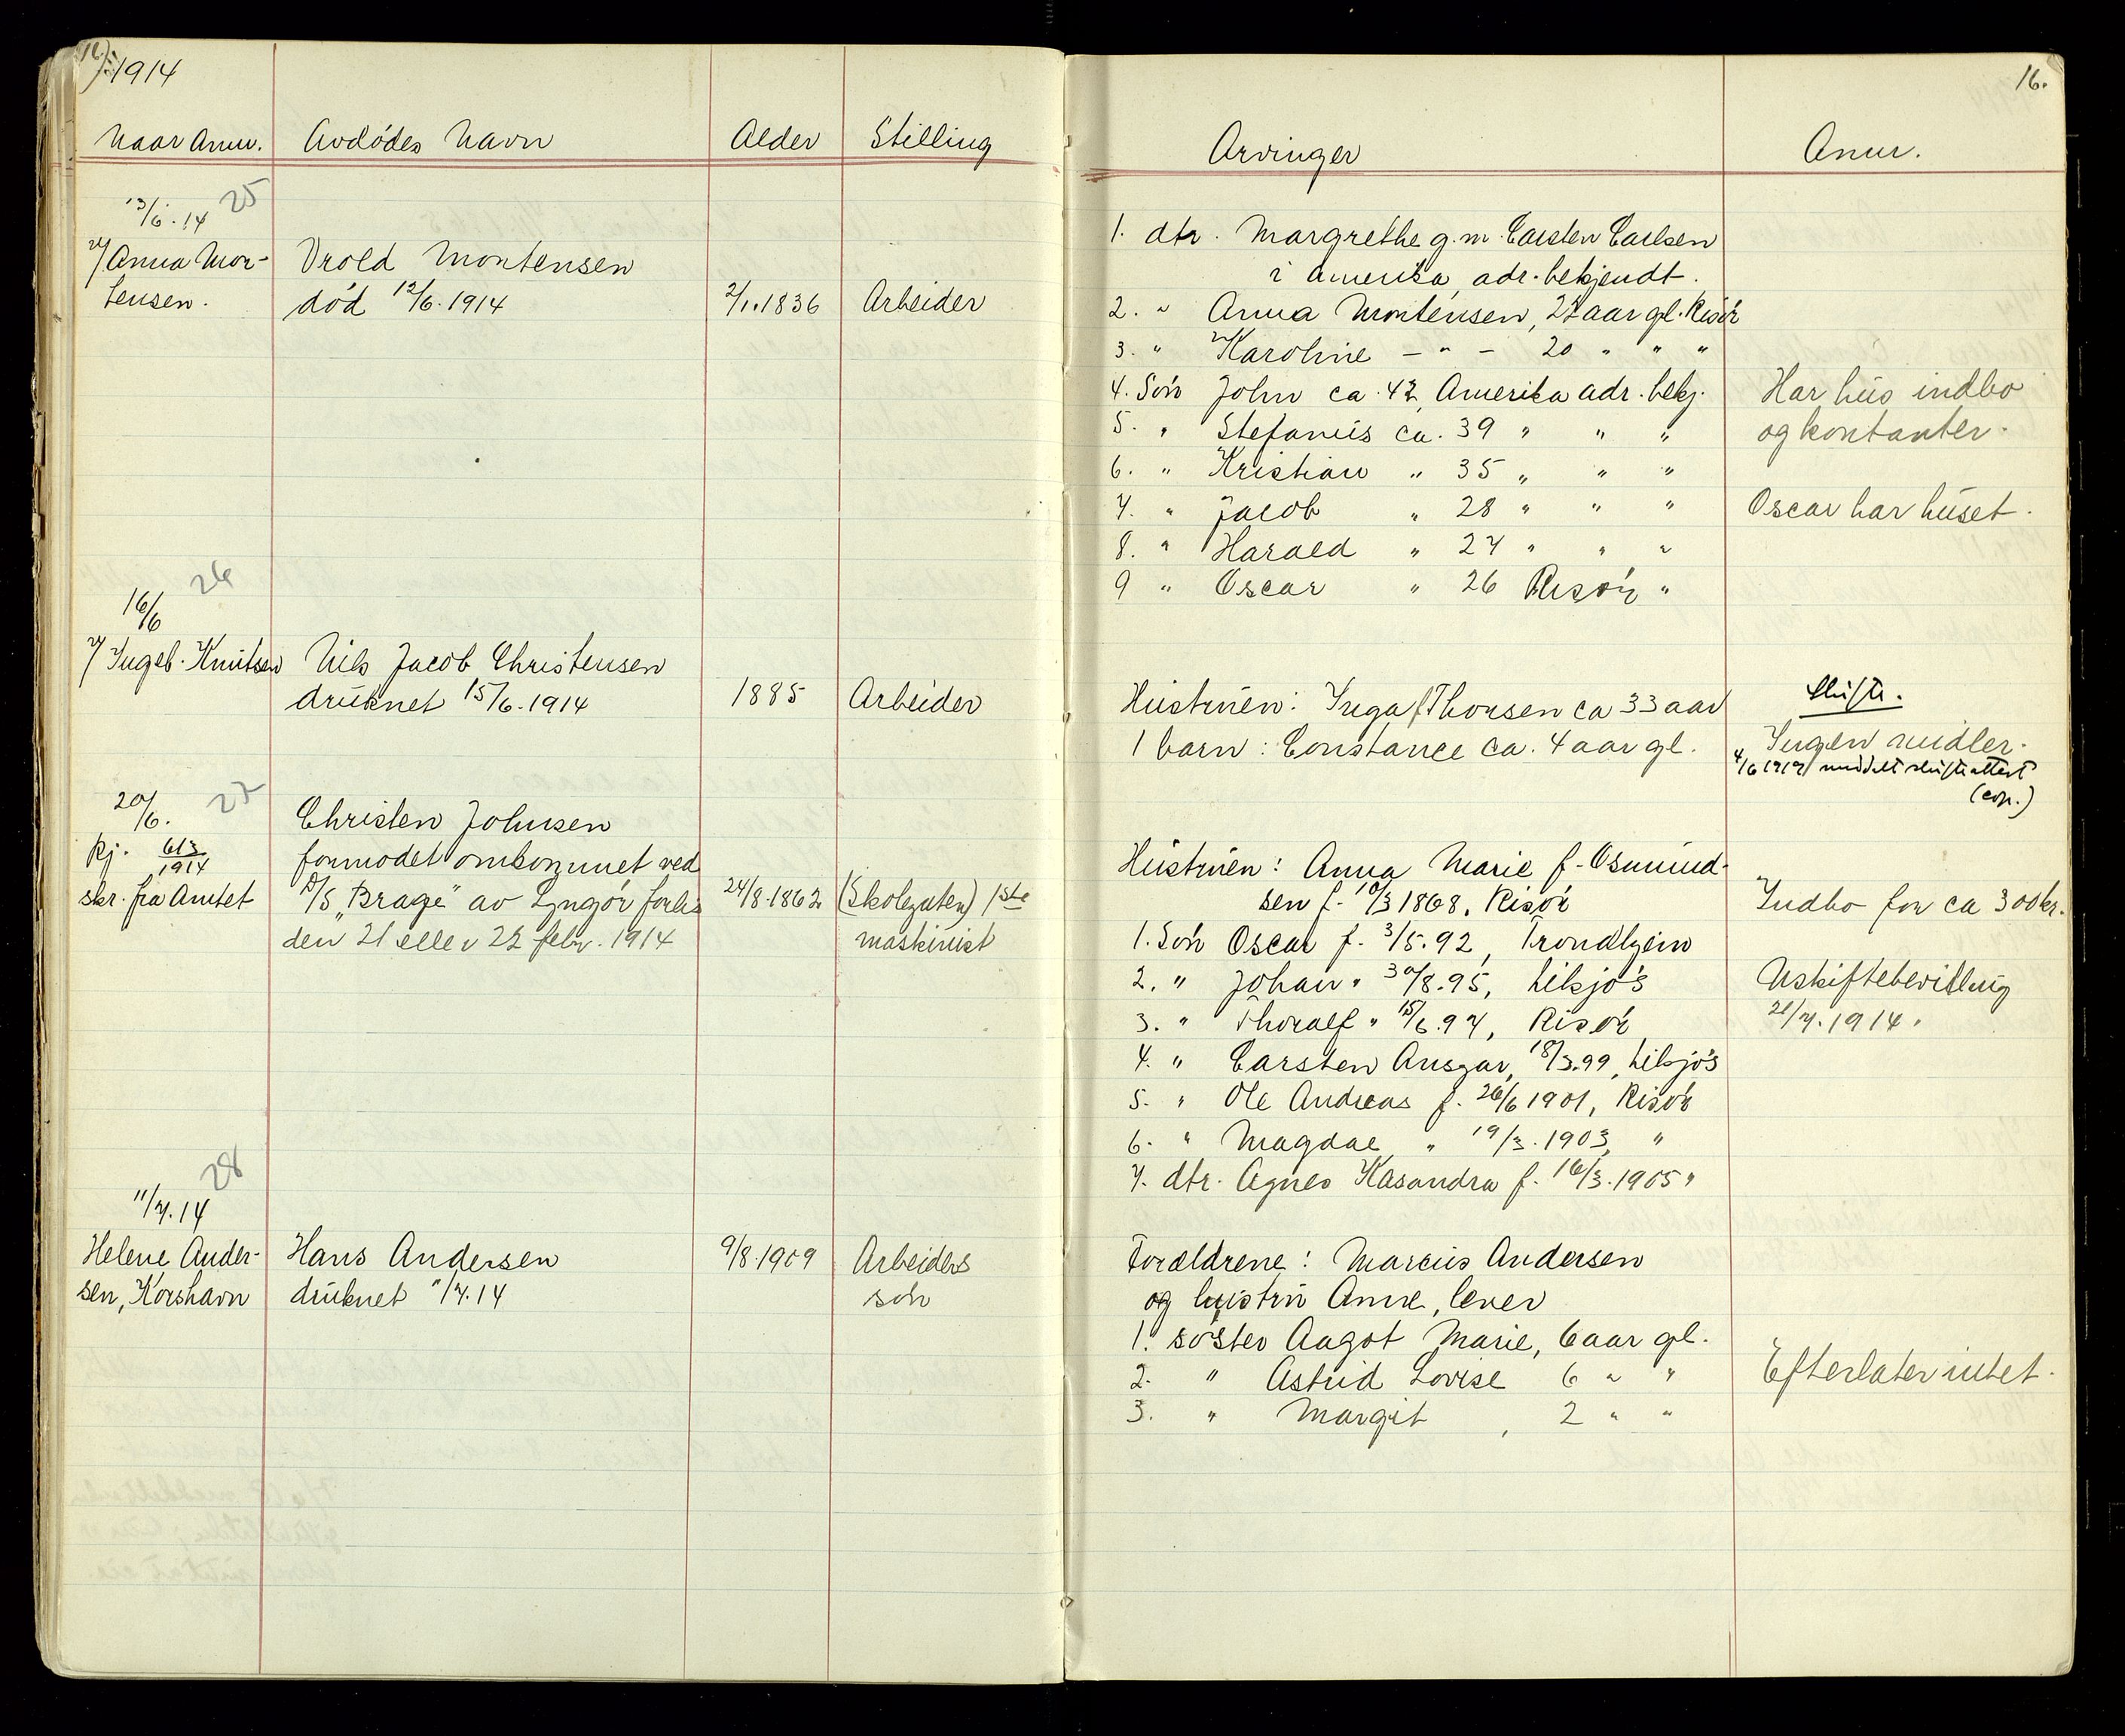 1914
16.
Naar Anm. Avdødes Navn Alder Stilling Arvinger Anm.
25
13/6.14
v/ Anna Mor-
tensen.
Vrold Mortensen
død 12/6.1914 2/1.1836 Arbeider
1. dtr. Margrethe g.m. Carsten Carlsen
i Amerika, adr. bekjendt.
2. " Anna Mortensen, 22 aar gl. Risør
3. " Karoline - " - 20 " " "
4. Søn John ca. 42 Amerika adr. bekj.
5. " Stefanus ca. 39 " " "
6. " Kristian " 35 " " "
7. " Jacob " 28 " " "
8. " Harald " 24 " " "
9 " Oscar " 26 Risør "
Har hus indbo
og kontanter.
Oscar har huset.
26
16/6
v/ Ingeb. Knutsen
Nils Jacob Christensen
druknet 15/6.1914 1885 Arbeider
Hustruen: Inga f. Thorsen ca 33 aar
1 barn: Constance ca. 4 aar gl.
Skifte.
Ingen midler.
4/6 1919 meddelt skifteattest
(cop.)
27
20/6.
kj. 613/1914
skr. fra Amtet
Christen Johnsen
formodet omkommet ved
D/S "Brage" av Lyngør forlis
den 21 eller 22 febr. 1914
24/8.1862 (Skolegaten) 1ste
maskinist
Hustruen: Anna Marie f. Osmund-
sen f. 10/3 1868, Risør
1. Søn Oscar f. 3/5.92, Trondhjem
2. " Johan " 30/8.95, tilsjøs
3. " Thoralf " 15/6.97, Risør
4. " Carsten Ansgar, 18/3.99, tilsjøs
5. " Ole Andreas f. 26/6 1901, Risør
6. " Magdal " 19/3.1903, "
7. dtr. Agnes Kasandra f. 16/3.1905 "
Indbo for ca 300 kr.
Uskiftebevilling
21/7.1914.
28
11/7.14
Helene Ander-
sen, Korshavn
Hans Andersen
druknet 11/7.14
9/8.1909 Arbeiders
søn
Forældrene: Marcus Andersen
og hustru Anne, lever
1. søster Aagot Marie, 6 aar gl.
2. " Astrid Lovise 6 " "
3. " Margit, 2 " "
Efterlater intet.